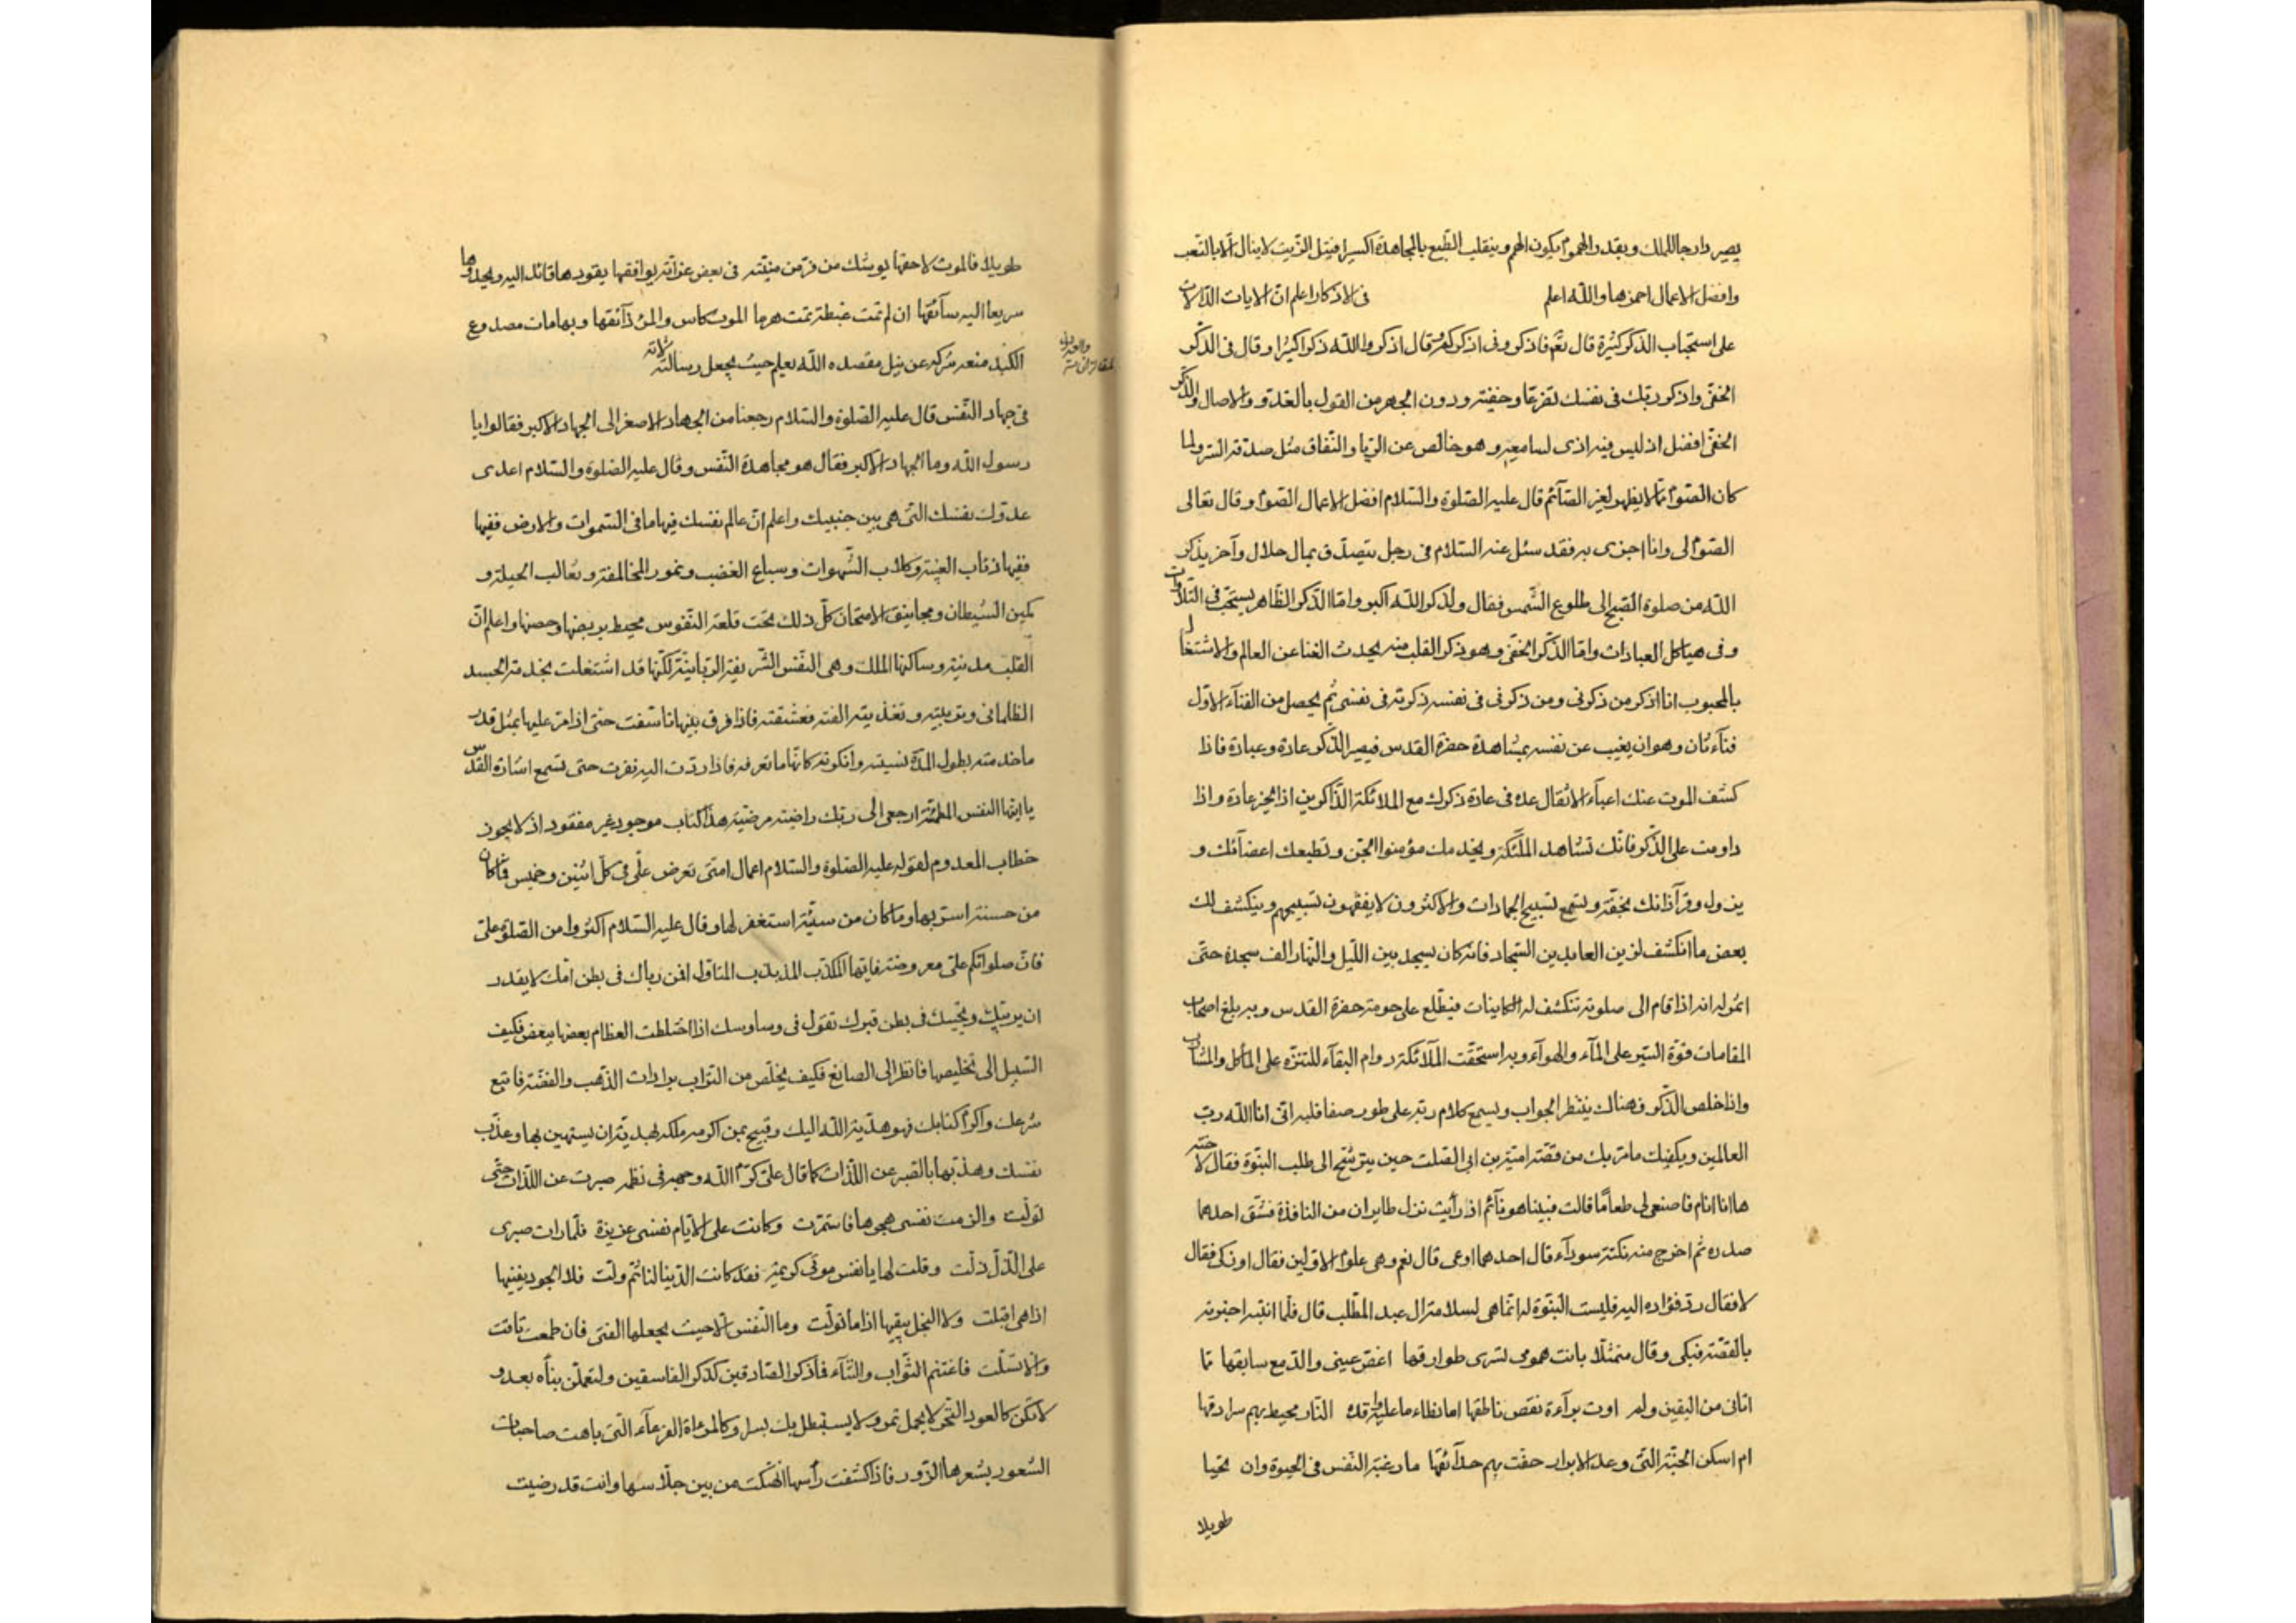 يصير دارجا للملك وبقدر الهموم يكون الهم وينقلب الطبع بالمجاهدة اكسيرا فيتل الزيت لا ينال الا بالتعب
وافضل الاعمال احمزها والله اعلم في الاذكار اعلم ان الايات الدالات
على استحباب الذكر كثيرة قال تعم فاذكروني اذكركم وقال اذكروا الله ذكرا كثيرا وقال في الذكر
الخفي واذكر ربك في نفسك تضرعا وخفيته ودون الجهر من القول بالغدو والاصال والذكر
الخفي افضل اذ ليس فيه اذى لسامعيه وهو خالص عن الريا والنفاق مثل صدقة السر ولما
كان الصوم مما لا يظهر لغير الصائم قال عليه الصلوة والسلام افضل الاعمال الصوم وقال تعالى
الصوم لى وانا اجزى به فقد سئل عنه السلام في رجل يتصدق بمال حلال وآخر يذكر
الله من صلوة الصبح الى طلوع الشمس فقال ولذكر الله اكبر واما الذكر الظاهر يستحب في التلاوات
وفى هياكل العبادات واما الذكر الخفى وهو ذكر القلب منه يحدث الغنا عن العالم والاشتغال
بالمحبوب انا اذكر من ذكرنى ومن ذكرنى فى نفسه ذكرته فى نفسى ثم يحصل من الفنآء الاول
فنآء ثان وهو ان يغيب عن نفسه بمشاهدة حضرة القدس فيصير الذكر عادة وعبادة فاذا
كشف الموت عنك اعبآء الاثقال عدت فى عادة ذكرك مع الملائكة الذاكرين اذا الخير عادة واذا
داومت على الذكر فانك تشاهد الملئكة ويخدمك مؤمنوا الجن وتطيعك اعضآئك و
يزول وقر آذانك بخفة وتسمع تسبيح الجمادات والاكثرون لا يفقهون تسبيحهم وينكشف لك
بعض ما انكشف لزين العابدين السجاد فانه كان يسجد بين الليل والنهار الف سجدة حتى
انه اذا قام الى صلوته تنكشف له الكاينات فيطلع على حومة حضرة القدس وبه بلغ اصحاب
المقامات قوة السير على المآء والهوآء وبه استحقت الملآئكة دوام البقآء للتنزه على المأكل والمشارب
واذا خلص الذكر فهناك ينتظر الجواب ويسمع كلام ربه على طور صفا قلبه انى انا الله رب
العالمين ويكفيك ما مر بك من قصة امية بن ابى الصلت حين يترشح الى طلب النبوة فقال لاخته
ها انا انام فاصنعى لى طعاما قالت فبينا هو نآئم اذ رأيت نزل طايران من النافذة فشق احدهما
صدره ثم اخرج منه نكتة سودآء قال احدهما اوعى قال نعم وهى علوم الاولين فقال او زكى فقال
لا فقال رد فؤاده اليه فليست النبوة له انما هى لسلامة ال عبد المطلب قال فلما انتبه اخبرته
بالقصة فبكى وقال متمثلا باتت همومى تسرى طوارقها اغض عينى والدمع سابقها مما
اتانى من اليقين ولم اوت برآءة نقص ناطقها اما لظاء ما عليه واقدة النار محيط بهم سرادقها
ام اسكن الجنة التى وعد الابرار حفت بهم حدآئقها ما رغبة النفس فى الحيوة وان تحيا
طويلا
طويلا فالموت لاحقها يوشك من فر من منيته فى بعض غراته يوافقها يقودها قائد اليه ويحدوها
سريعا اليه سآئقها ان لم تمت غبطة تمت هرما الموت كاس والمرء ذآئقها وبها مات مصدوع
الكبد منعه شركه عن نيل مقصده الله يعلم حيث يجعل رسالته
فى جهاد النفس قال عليه الصلوة والسلام رجعنا من الجهاد الاصغر الى الجهاد الاكبر فقالوا يا
رسول الله وما الجهاد الاكبر فقال هو مجاهدة النفس وقال عليه الصلوة والسلام اعدى
عدوك نفسك التى هى بين جنبيك واعلم ان عالم نفسك فيها ما فى السموات والارض ففيها
ففيها ذئاب الغيبة وكلاب الشهوات وسباع الغضب ونمور المخالفة وثعالب الحيلة و
كمين الشيطان ومجانيق الامتحان كل ذلك تحت قلعة النفوس محيط بربضها وحصنها واعلم ان
القلب مدينة وساكنها الملك وهى النفس الشريفة الربانية لكنها قد اشتغلت بخدمة الجسد
الظلمانى وتربيته وتغذيته الفته فعشقته فاذا فرق بينهما تاسفت حتى اذا مر عليها بمثل قدر
ما خدمته بطول المدة نسيته وانكرته كانها ما تعرفه فاذا ردت اليه نفرت حتى تسمع اشارة القدس
يا ايتها النفس المطمئنة ارجعى الى ربك راضية مرضية هذا كتاب موجود غير مفقود اذ لا يجوز
خطاب المعدوم لقوله عليه الصلوة والسلام اعمال امتى تعرض على فى كل اثنين وخميس فما كان
من حسنة استر بها وما كان من سيئة استغفر لها وقال عليه السلام اكثروا من الصلوة على
فان صلواتكم على معروضة فايها المكذب المذبذب المتاقل افمن رباك فى بطن امك لا يقدر
ان يربيك ويحييك فى بطن قبرك تقول فى وساوسك اذا اختلطت العظام بعضها ببعض فكيف
السبيل الى تخليصها فانظر الى الصانع فكيف يخلص من التراب برادات الذهب والفضة فاتبع
شرعك واكرم كتابك فهو هدية الله اليك وقبيح بمن اكرمه ملكه بهدية ان يستهين بها وعذب
نفسك وهذبها بالصبر عن اللذات كما قال على كرم الله وجهه فى نظم صبرت عن اللذات حتى
تولت والزمت نفسى هجرها فاستمرت وكانت على الايام نفسى عزيزة فلما رات صبرى
على الذل ذلت وقلت لها يا نفس موتى كريمة فقد كانت الدنيا لنا ثم ولت فلا الجود يفنيها
اذا هى اقبلت ولا البخل يبقيها اذا ما تولت وما النفس الا حيث يجعلها الفتى فان طمعت تاقت
والا تسلت فاغتنم الثواب والثنآء فاذكر الصادقين كذكر الفاسقين ولتعلمن نبأه بعد و
لا تكن كالعود النخر لا يحمل ثمر ولا يستظل بك بسار وكالمرءاة القرعآء التى باهت صاحبات
الشعور بشعرها الزور فاذا كشفت رأسها انهتكت من بين جلاسها وانت قد رضيت